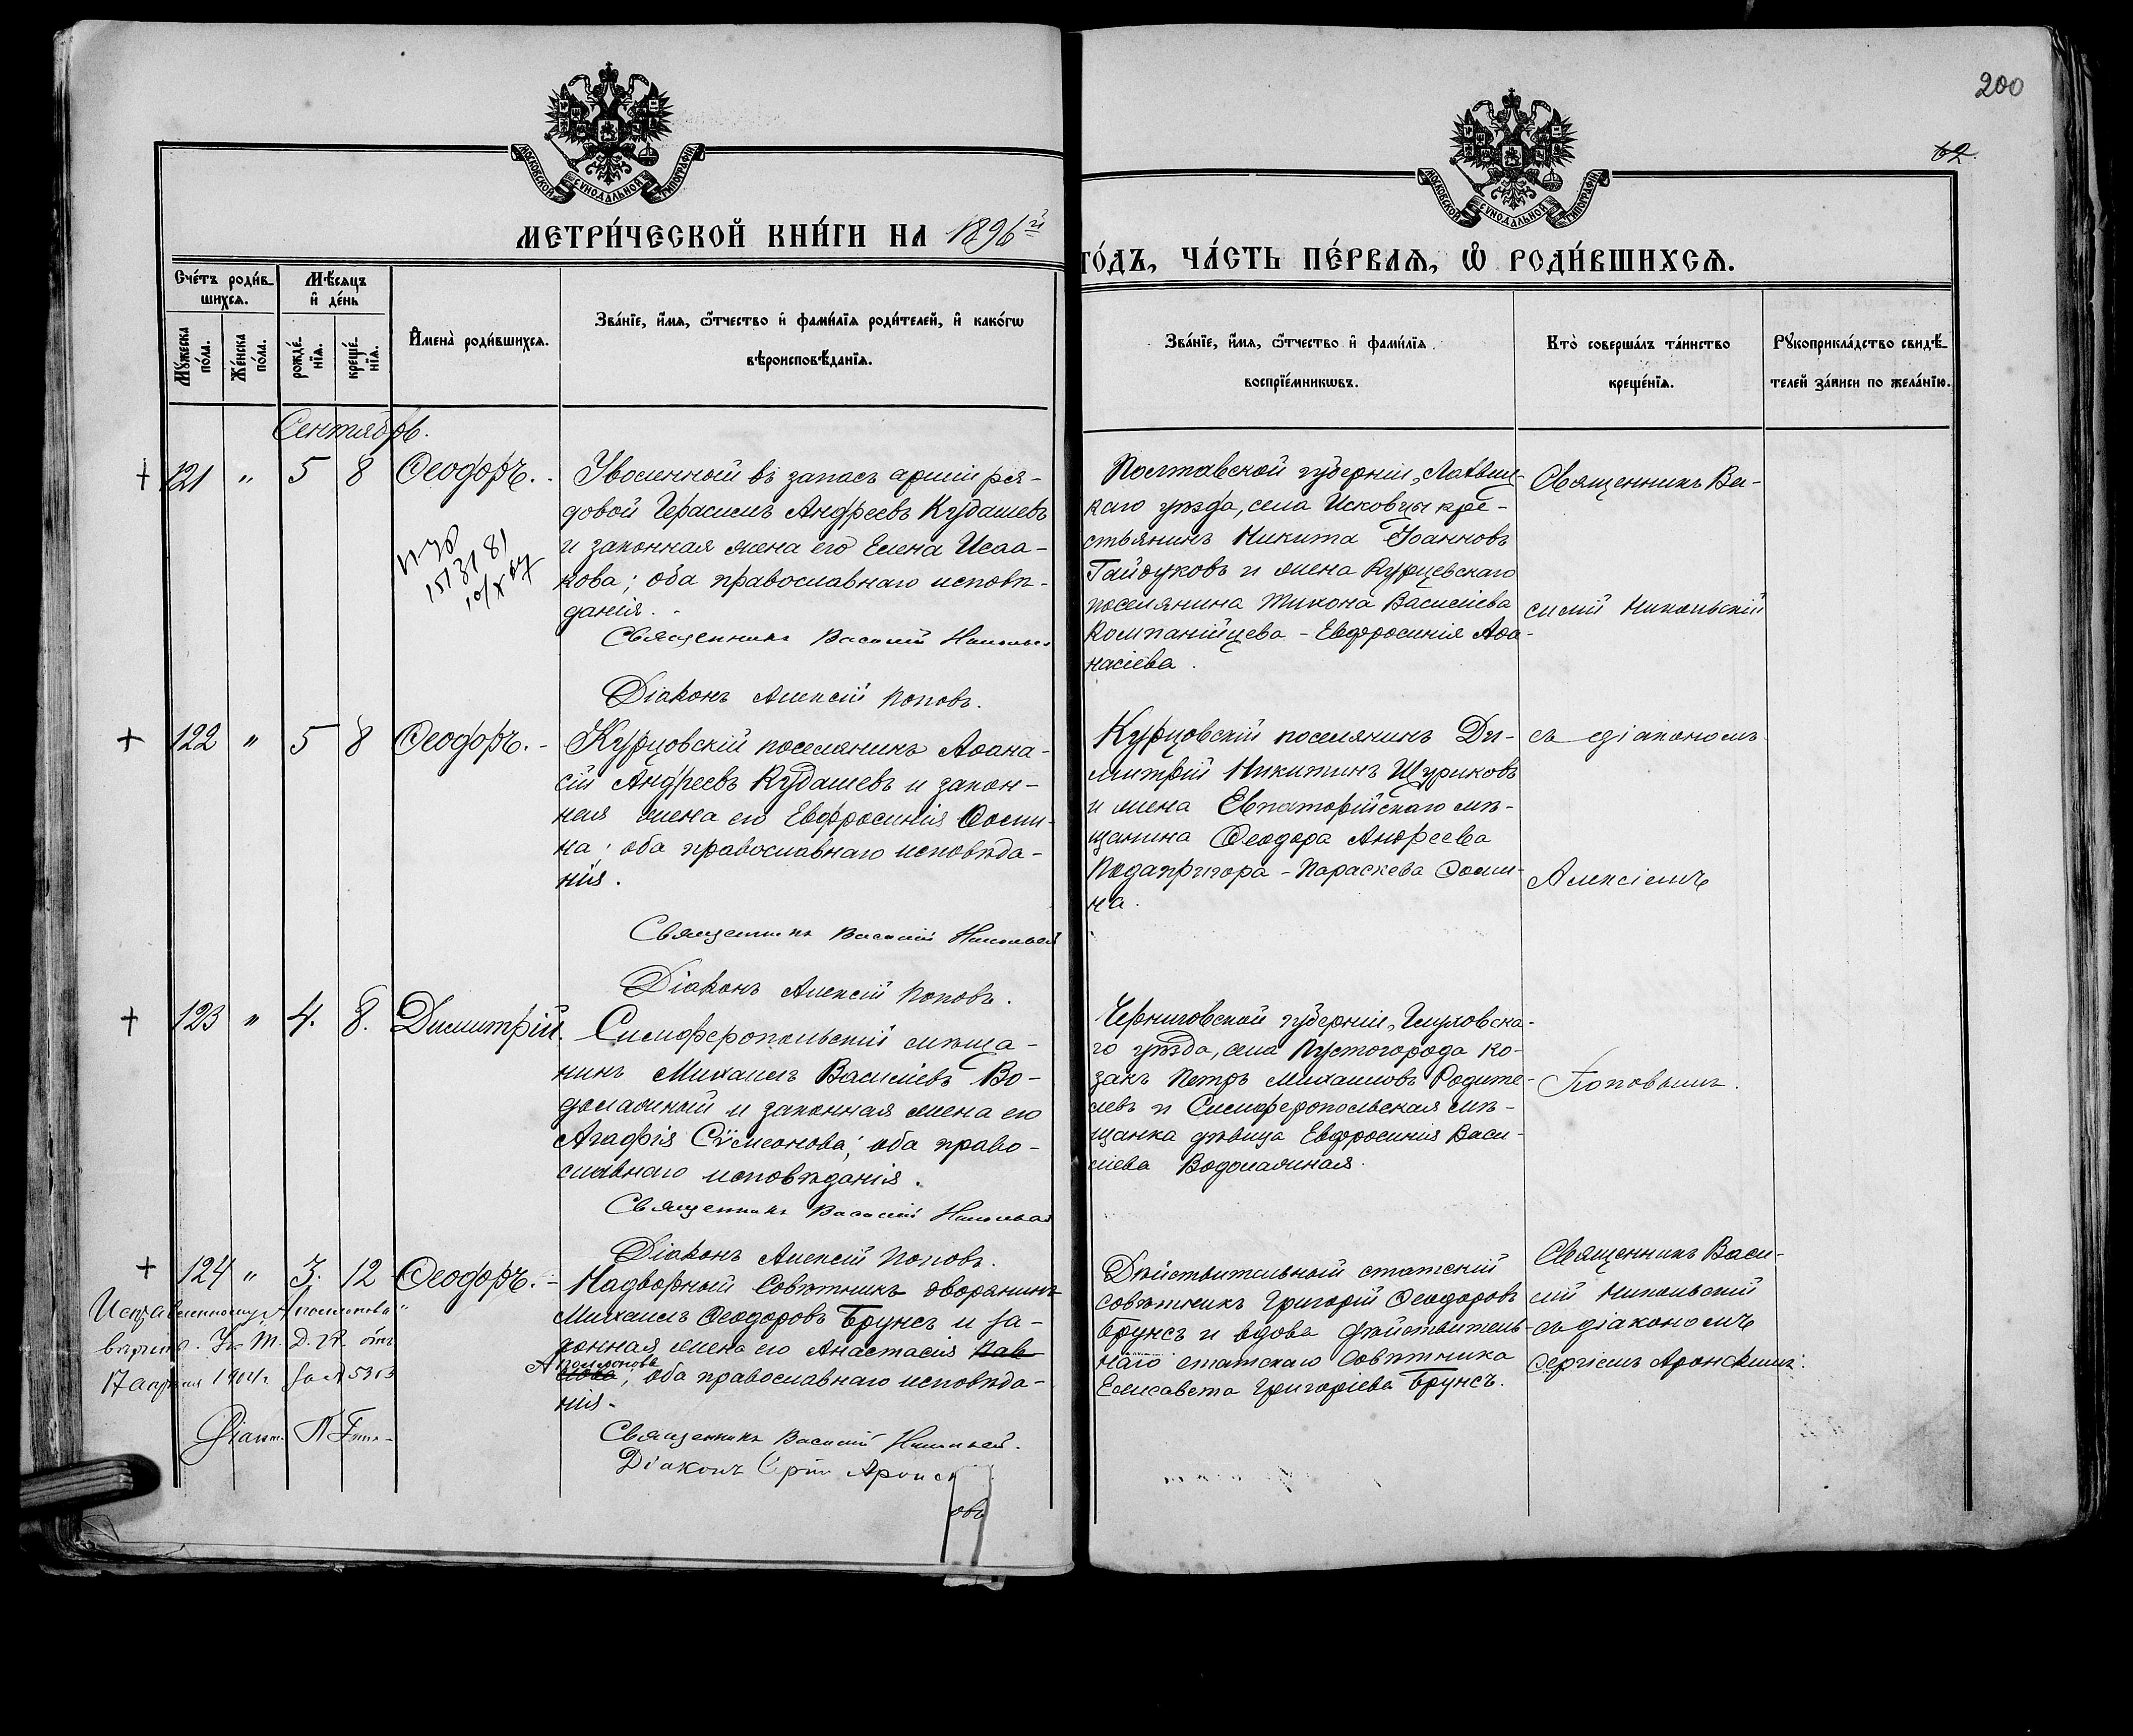 200
62.
МОСКОВСКОЙ СУНОДАЛЬНОЙ ТИПОГРАФІИ
МОСКОВСКОЙ СУНОДАЛЬНОЙ ТИПОГРАФІИ
МЕТРИ́ЧЕСКОЙ КНИ́ГИ НА 1896й
ГО́ДЪ, ЧА́СТЬ ПЕ́РВАѦ, Ѡ҆ РОДИ́ВШИХСѦ.
Сче́тъ роди́в-
шихсѧ.
Мѣ́сѧцъ
и҆ де́нь
Мꙋ́жеска
по́ла.
Же́нска
по́ла.
рожде́-
нїѧ.
креще́-
нїѧ.
И҆мена̀ роди́вшихсѧ.
Зва́нїе, и҆́мѧ, ѻ҆́тчество и҆ фами́лїѧ роди́телей, и҆ како́гѡ
вѣроисповѣ́данїѧ.
Зва́нїе, и҆́мѧ, ѻ҆́тчество и҆ фами́лїѧ
воспрїе́мникѡвъ.
Кто̀ соверша́лъ та́инство
креще́нїѧ.
Рꙋкоприкла́дство свидѣ́-
телей за́писи по жела́нїю.
Сентябрь.
+ 121 " 5 8 Ѳеодоръ.
Уволенный въ запасъ арміи ря-
довой Герасимъ Андреевъ Кудашевъ
и законная жена его Елена Исаа-
кова; оба православнаго исповѣ-
данія.
Священникъ Василій Никольск
Діаконъ Алексій Поповъ.
Полтавской губерніи, Лохвиц-
каго уѣзда, села Исковцы кре-
стьянинъ Никита Іоанновъ
Гайдуковъ и жена Курцевскаго
поселянина Тихона Василіева
Компанійцева - Евфросинія Аѳа-
насіева.
Священникъ Ва-
силій Никольскій
+ 122 " 5 8 Ѳеодоръ.
Курцовскій поселянинъ Аѳана-
сій Андреевъ Кудашевъ и закон-
ная жена его Евфросинія Ѳоми-
на; оба православнаго исповѣда-
нія.
Священникъ Василій Никольскій
Діаконъ Алексій Поповъ.
Курцовскій поселянинъ Ди-
митрій Никитинъ Щуриковъ
и жена Евпаторійскаго мѣ-
щанина Ѳеодора Андреева
Подапригора - Параскева Ѳоми-
на.
съ діакономъ
Алексіемъ
+ 123 " 4. 8. Димитрій.
Симферопольскій мѣща-
нинъ Михаилъ Василіевъ Во-
долажный и законная жена его
Агафія Сѵмеонова; оба право-
славнаго исповѣданія.
Священникъ Василій Никольскій
Діаконъ Алексій Поповъ.
Черниговской губерніи, Глуховска-
го уѣзда, села Пустогорода ко-
закъ Петръ Михаиловъ Родите-
левъ и Симферопольская мѣ-
щанка дѣвица Евфросинія Васи-
ліева Водолажная.
Поповымъ.
+ 124 " 3. 12 Ѳеодоръ.
Надворный Совѣтникъ дворянинъ
Михаилъ Ѳеодоровъ Брунсъ и за-
конная жена его Анастасія Пав-
Аполлонова
лова; оба православнаго исповѣда-
нія.
Священникъ Василій Никольскій.
Діаконъ Сергій Аронск
овъ
Дѣйствительный статскій
совѣтникъ Григорій Ѳеодоровъ
Брунсъ и вдова Дѣйствитель-
наго статскаго Совѣтника
Елисавета Григоріева Брунсъ.
Священникъ Васи-
лій Никольскій
съ діакономъ
Сергіемъ Аронскимъ.
Исправленному "Аполлонова"
вѣрить. Ук. Т. Д. К. отъ
17 апрѣля 1904г. за № 5303
Діакон.